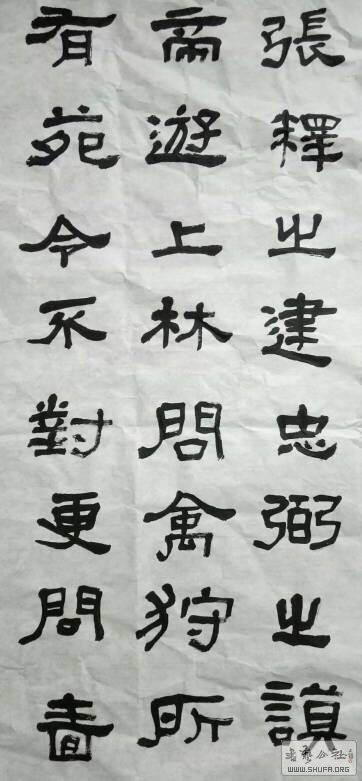 張釋之建忠弼之謨
帝遊上林問禽狩所
有苑令不對更問嗇
WWW.SHUFA.ORG